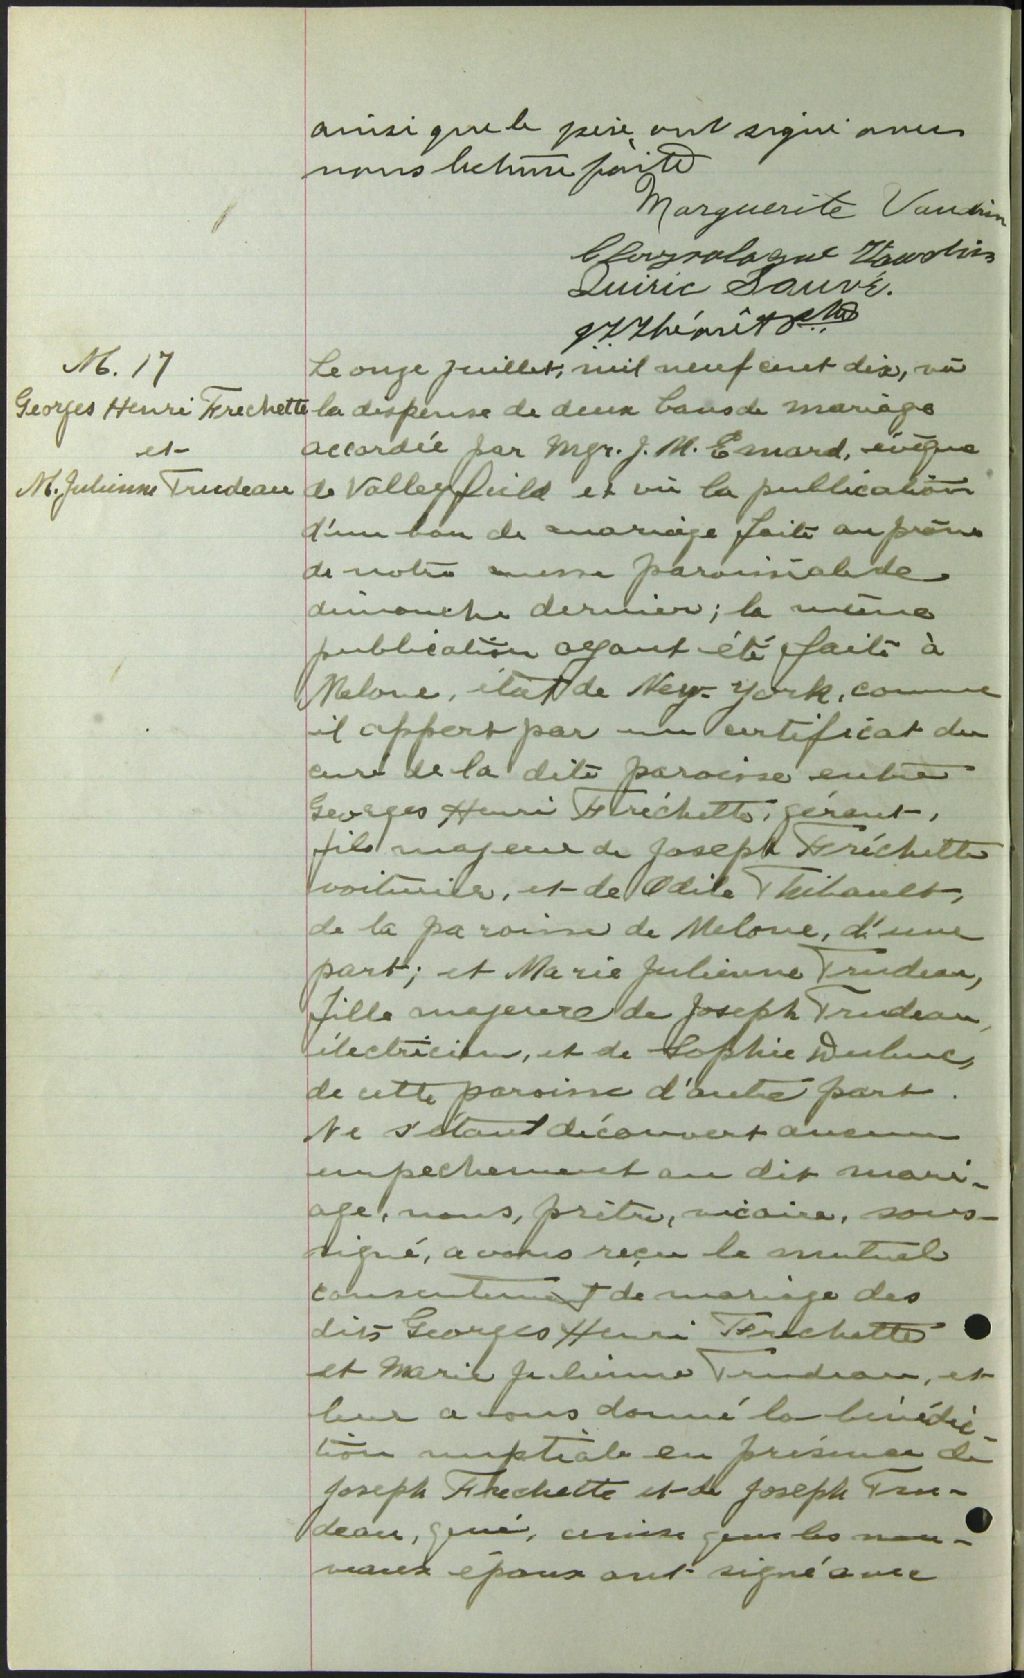 ainsi que le père, ont signé avec
nous lecture faite
Marguerite Vaudrin
Chrysologue Vaudrin
Quiric Sauvé.
ptre
M. 17
Georges Henri Frechette
et
M. Julienne Trudeau
Le onze juillet, mil neuf cent dix, vu
la dispense de deux bans de mariage
accordée par Mgr. J. M. Emard, évêque
de Valleyfield et vu la publication
d'un ban de mariage faite au prône
de notre messe paroissiale de
dimanche dernier; la même
publication ayant été faite à
Malone, état de New-York, comme
il appert par un certificat du
curé de la dite paroisse entre
Georges Henri Fréchette, gérant,
fils majeur de Joseph Fréchette
voiturier, et de Odile Thibault,
de la paroisse de Malone, d'une
part; et Marie Julienne Trudeau,
fille majeure de Joseph Trudeau,
électricien, et de Sophie Dubuc,
de cette paroisse d'autre part.
Ne s'étant découvert aucun
empechement au dit mari-
age, nous, prêtre, vicaire, sous-
signé, avons reçu le mutuel
consentement de mariage des
dits Georges Henri Frechette
et Marie Julienne Trudeau, et
leur avons donné la bénédic-
tion nuptiale en présence de
Joseph Frechette et de Joseph Tru-
deau, qui, ainsi que les nou-
veaux époux ont signé avec